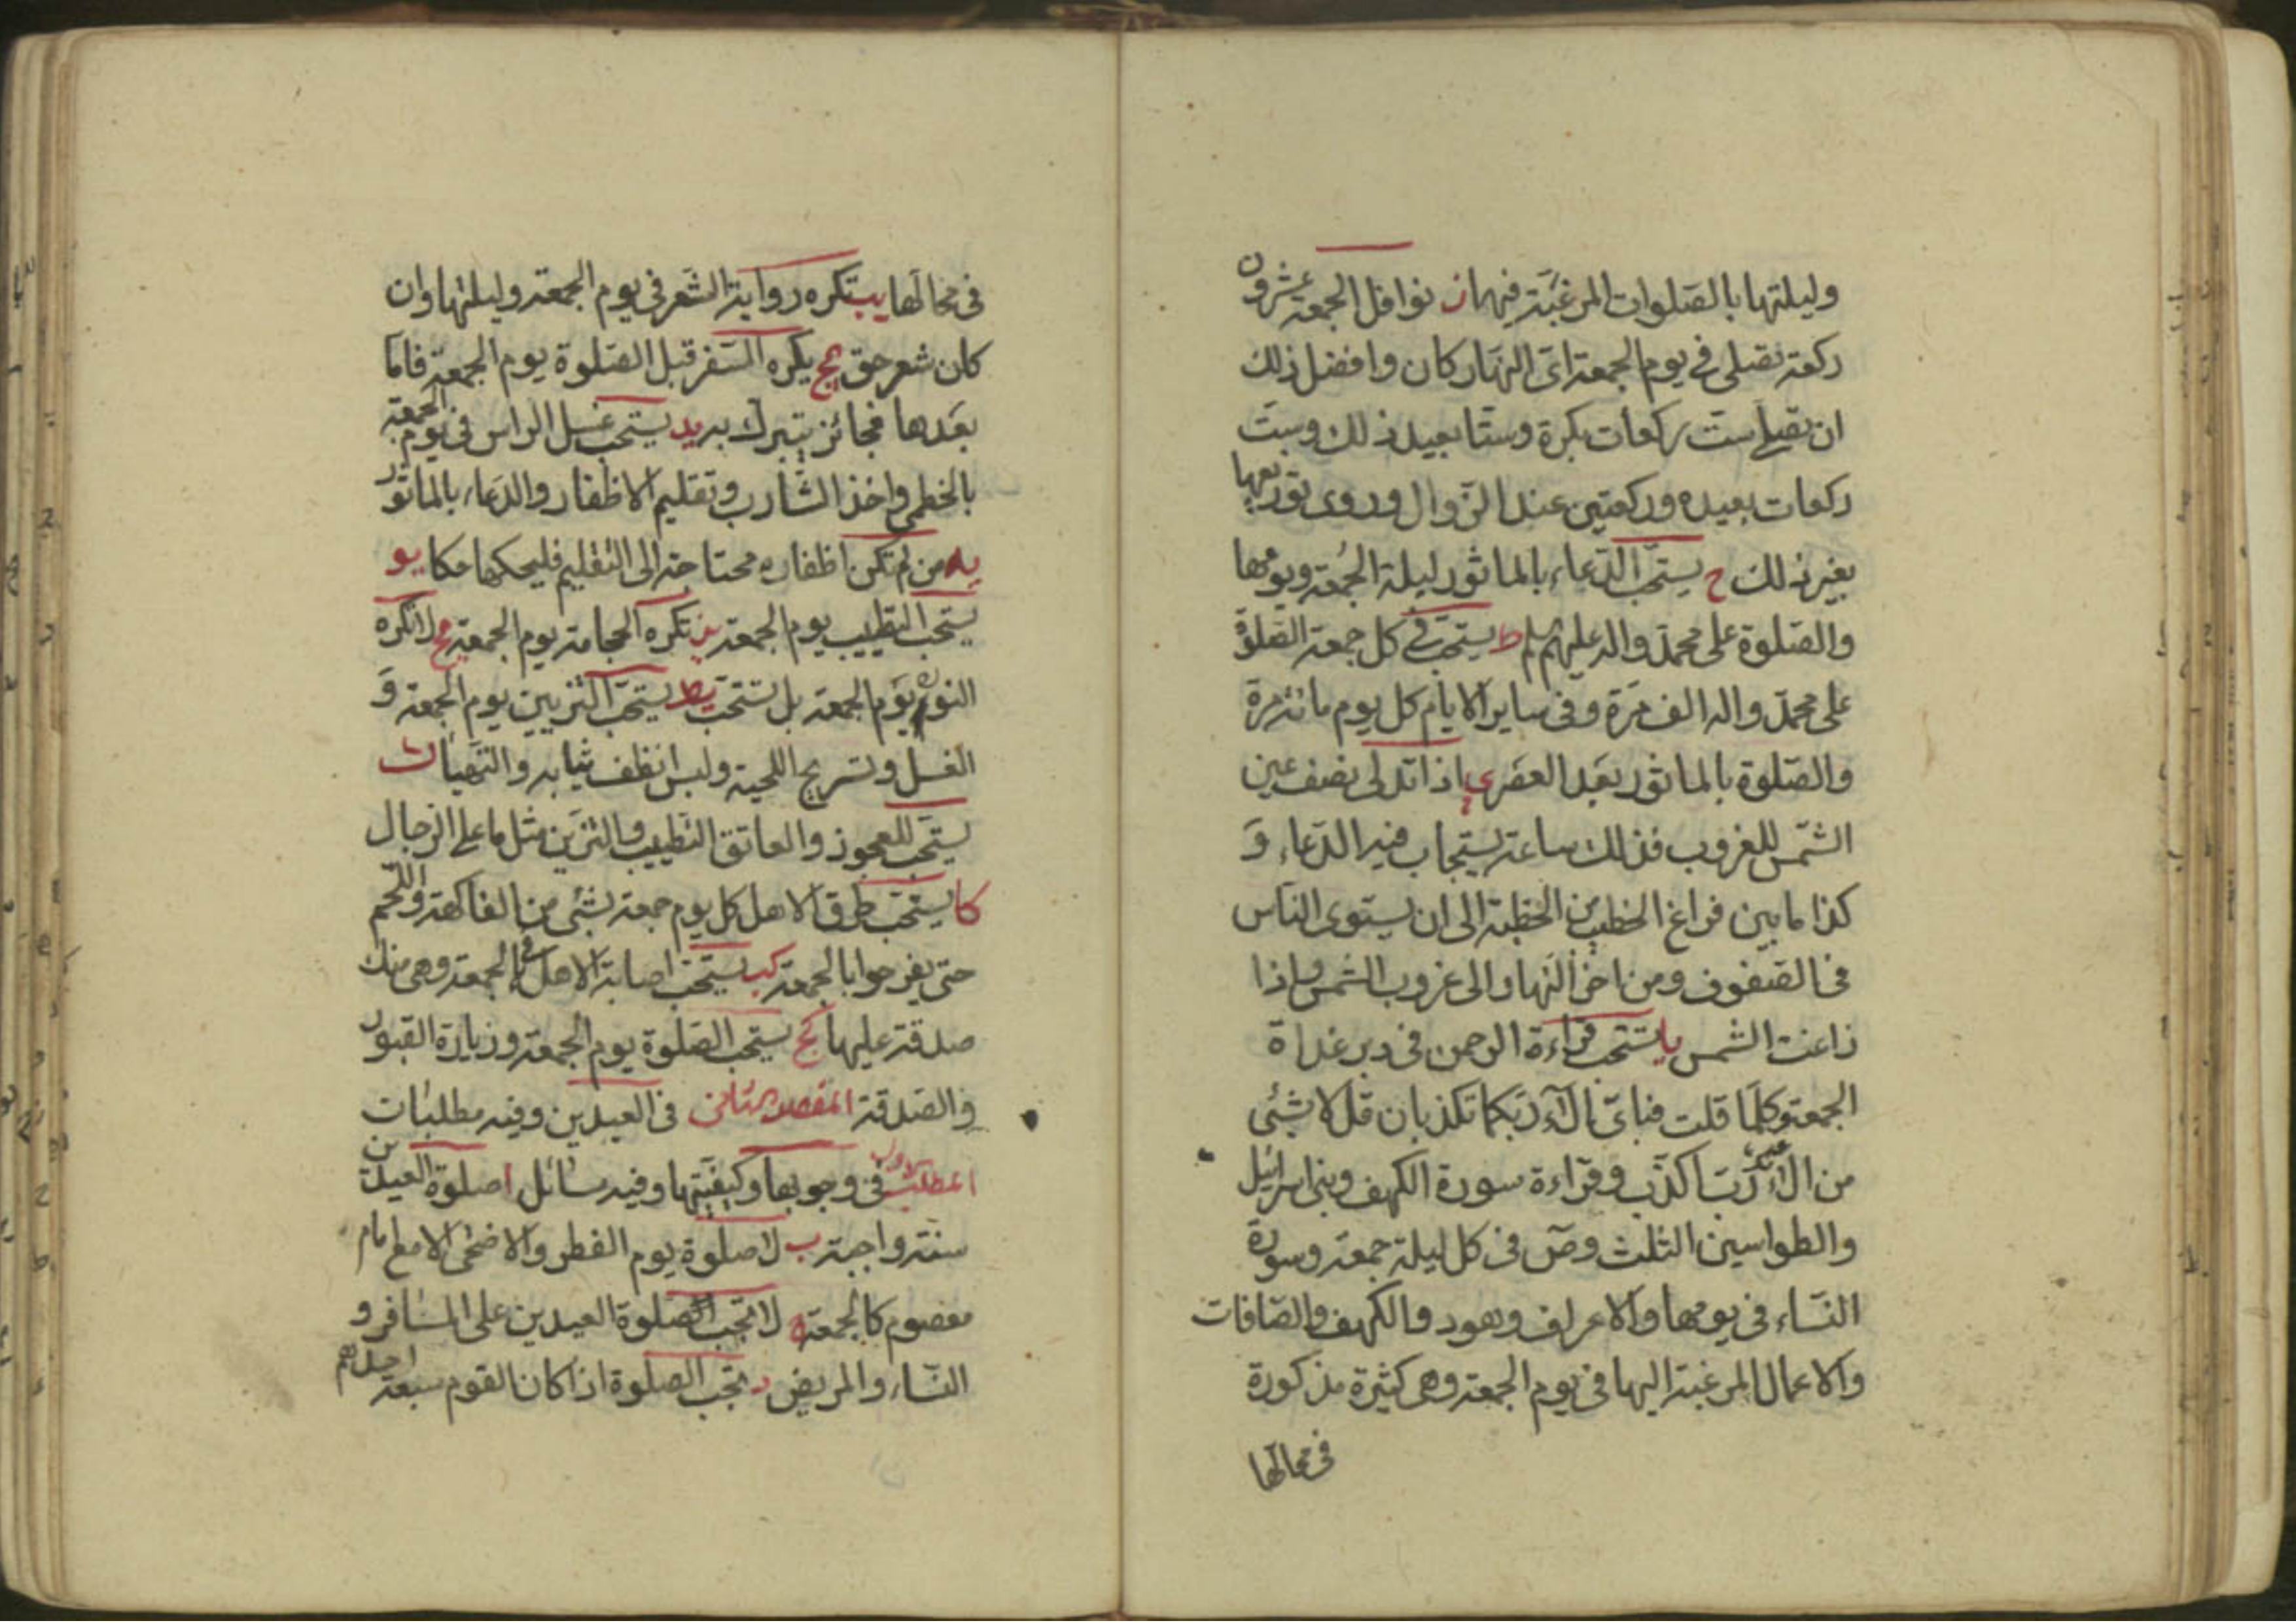 وليلتها بالصلوات المرغبة فيها ز نوافل الجمعة عشرون
ركعة تصلى في يوم الجمعة اى النهار كان وافضل ذلك
ان تصلى ست ركعات بكرة وستا بعيد ذلك وست
ركعات بعيده وركعتين عند الزوال وروى توزيعها
بغير ذلك ح يستحب الدعاء بالماثور ليلة الجمعة ويومها
والصلوة على محمد واله عليهم السلم ط يستحب في كل جمعة الصلوة
على محمد واله الف مرة وفى ساير الايام كل يوم مائة مرة
والصلوة بالماثور بعد العصر ى اذا تدلى نصف عين
الشمس للغروب فذلك ساعة يستجاب فيه الدعاء و
كذا ما بين فراغ الخطيب من الخطبة الى ان يستوى الناس
في الصفوف ومن اخر النهار الى غروب الشمس واذا
زاغت الشمس يا يستحب قراءة الرحمن في دبر غداة
الجمعة وكلما قلت فباى الآء ربكما تكذبان قل لا بشئ
من الآئك رب اكذب وقراءة سورة الكهف وبنى اسرائيل
والطواسين الثلث وص في كل ليلة جمعة وسورة
النساء في يومها والاعراف وهود والكهف والصافات
والاعمال المرغبة اليها في يوم الجمعة وهى كثيرة مذكورة
في محالها
في محالها يب تكره رواية الشعر في يوم الجمعة وليلتها وان
كان شعر حق يج يكره السفر قبل الصلوة يوم الجمعة فاما
بعدها فجائز يتبرك به يد يستحب غسل الراس في يوم الجمعة
بالخطمى واخذ الشارب وتقليم الاظفار والدعاء بالماثور
يه من لم تكن اظفاره محتاجة الى التقليم فليحكها حكا يو
يستحب التطييب يوم الجمعة يز تكره الحجامة يوم الجمعة يح لا تكره
النورة يوم الجمعة بل تستحب يط يستحب التزيين يوم الجمعة و
الغسل وتسريح اللحية ولبس انظف ثيابه والتهيأ ك
يستحب للعجوز والعاتق التطييب والتزين مثل ما على الرجال
كا يستحب طرق الاهل كل يوم جمعة بشئ من الفاكهة واللحم
حتى يفرحوا بالجمعة كب يستحب اصابة الاهل في الجمعة وهى منك
صدقة عليها كج يستحب الصلوة يوم الجمعة وزيارة القبور
والصدقة المقصد الثانى في العيدين وفيه مطلبات
المطلب الاول في وجوبها وكيفيتها وفيه مسائل ا صلوة العيدين
سنة واجبة ب لا صلوة يوم الفطر والاضحى الا مع امام
معصوم كالجمعة ج لا تجب الصلوة العيدين على المسافر و
النساء والمريض د تجب الصلوة اذا كان القوم سبعة احدهم